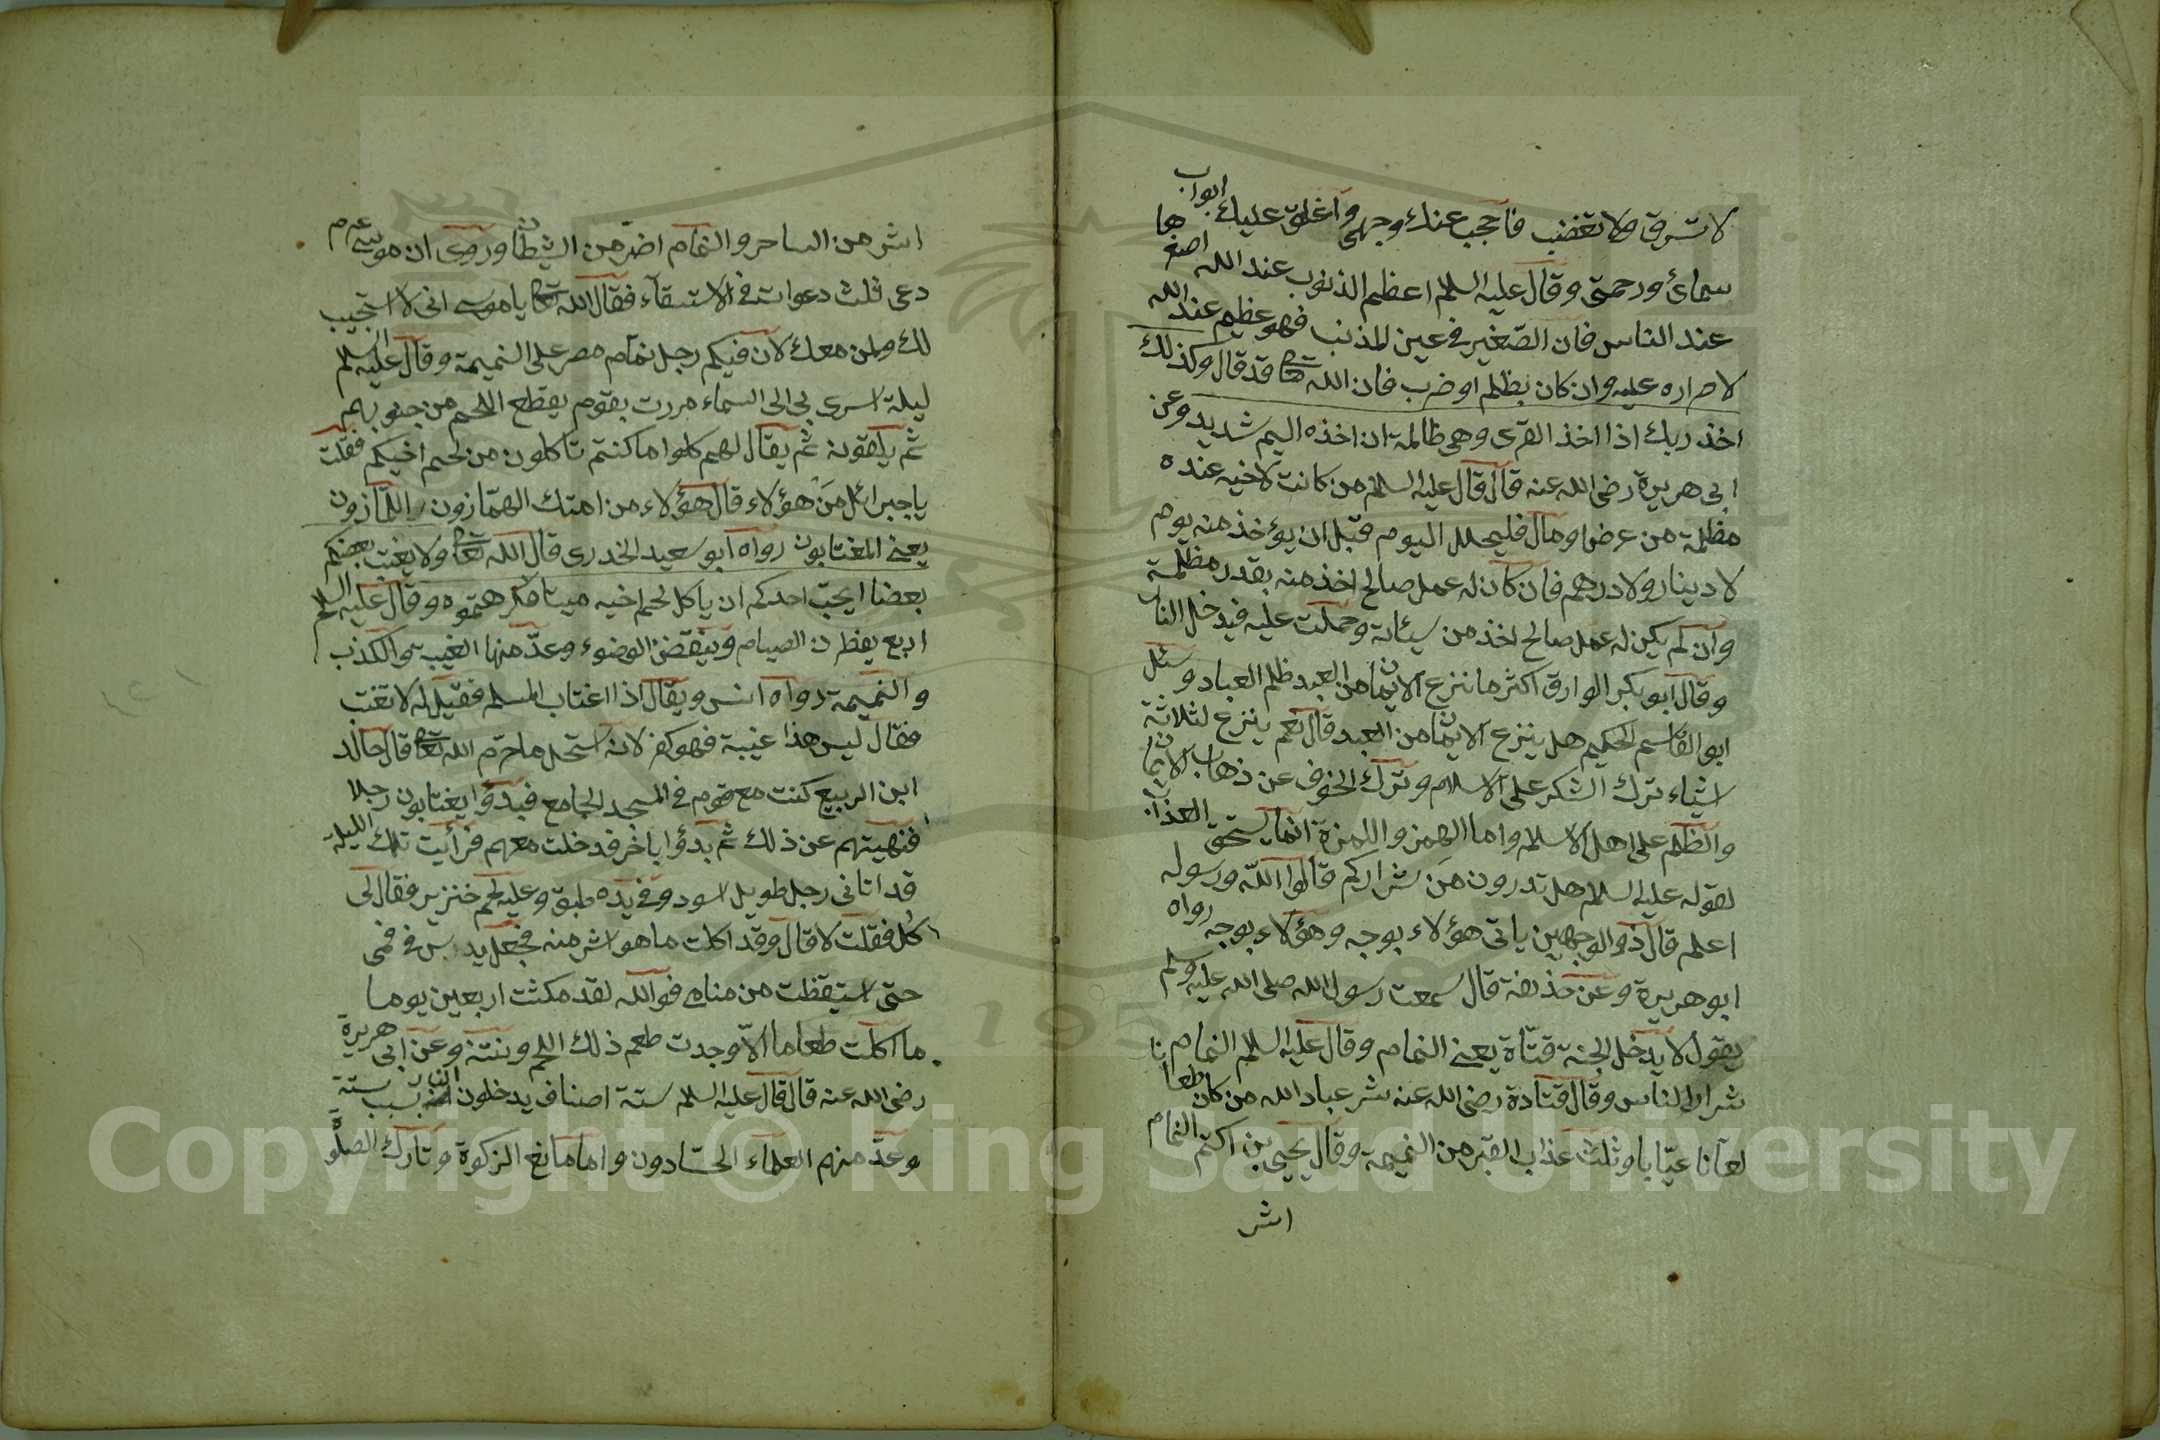 لا تسرق ولا تغضب فاحجب عنك وجهى واغلق عليك ابواب
سمائ ورحمتى وقال عليه السلم اعظم الذنوب عند الله اصغرها
عند الناس فان الصّغير فى عين المذنب فهو عظيم عند الله
لاصراره عليه وان كان بظلم او ضرب فان الله تعالى قد قال وكذلك
اخذ ربك اذا اخذ القرى وهى ظالمة ان اخذه اليم شديد وعن
ابى هريرة رضى الله عنه قال قال عليه السلم من كانت لاخيه عنده
مظلمة من عرض او مال فليحلل اليوم قبل ان يؤخذ منه يوم
لا دينار ولا درهم فان كان له عمل صالح اخذ منه بقدر مظلمة
وان لم يكن له عمل صالح اخذ من سيئاته وحملت عليه فيدخل النار
وقال ابو بكر الوارق اكثر ما ننزع الايمان من العبد ظلم العباد وسئل
ابو القاسم الحكيم هل ينزع الايمان من العبد قال نعم ينزع لثلاثة
اشياء ترك الشكر على الاسلام وترك الخوف عن ذهاب الايمان
والظلم على اهل الاسلم واما الهمز واللمزة انما يستحق العذاب
لقوله عليه السلم هل تدرون من شراركم قالوا الله ورسوله
اعلم قال ذو الوجهين ياتى هؤلاء بوجه وهؤلاء بوجه رواه
ابو هريرة وعن حذيفة قال سمعت رسول الله صلى الله عليه وسلم
يقول لا يدخل الجنة قتّاة يعنى النمام وقال عليه السلم النمام
شرار الناس وقال قتادة رضى الله عنه شر عباد الله من كان طعانا
لعانا عيّابا وثلث عذاب القبر من النميمة وقال يحيى بن اكتم النمام
اشر
اشر من الساحر والنمام اضرّ من الشيطان وروى ان موسى عم
دعى ثلث دعوات فى الاستسقاء فقال الله تعالى يا موسى انى لا استجيب
لك ولمن معك لان فيكم رجل نمام مصر على النميمة وقال عليه السلم
ليلة اسرى بى الى السماء مررت بقوم يقطع اللحم من جنوبهم
ثم يلقونه ثم يقال لهم كلوا ما كنتم تاكلون من لحم اخيكم فقلت
يا جبرائل مَن هؤلاء قال هؤلاء من امتك الهمّازون اللمّازون
يعنى المغتابون رواه ابو سعيد الخدرى قال الله تعالى ولا يغتب بعضكم
بعضا ايحبّ احدكم ان ياكل لحم اخيه ميتا فكرهتموه وقال عليه السلم
اربع يفطرن الصيام وينقض الوضوء وعدّ منها الغيبة والكذب
والنميمة رواه انس ويقال اذا اغتاب المسلم فقيل له لا تغتب
فقال ليس هذا غيبة فهو كفر لانه استحل ما حرّم الله تعالى قال خالد
ابن الربيع كنت مع قوم فى المسجد الجامع فبدؤا يغتابون رجلا
فنهيتهم عن ذلك ثم بدؤا باخر فدخلت معهم فرأيت تلك الليلة
قد اتانى رجل طويل اسود وفى يده طبق وعليه لحم خنزير فقال لى
كُل فقلت لا قال وقد اكلت ما هو اشر منه فجعل يدس فى فمى
حتى استيقظت من منامى فوالله لقد مكثت اربعين يوما
ما اكلت طعاما الّا وجدت طعم ذلك اللحم ونتنه وعن ابى هريرة
رضى الله عنه قال قال عليه السلم ستة اصناف يدخلون النار بسبب ستة
وعدّ منهم العلماء الحسّادون واما مانع الزكوة وتارك الصلوة